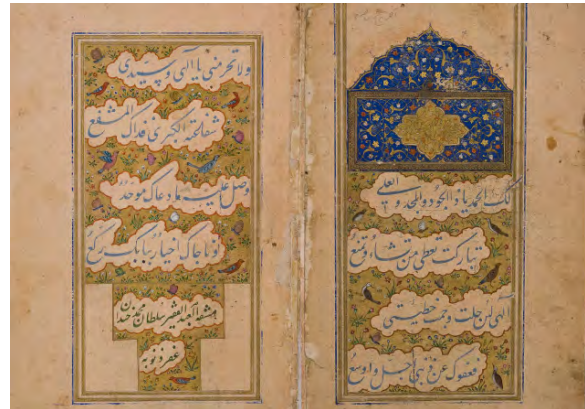 لك الحمد يا ذا الجود والمجد والعلى
تباركت تعطي من تشاء وتمنع
الهي لئن جلت وجمت خطيئتي
فعفوك عن ذنبي اجل واوسع
ولا تحرمني يا الهي وسيدي
شفاعته الكبرى فذاك المشفع
وصل عليه ما دعاك موحد
وناجاك اخيار ببابك ركع
مشقه العبد الفقير سلطان محمد خندان
غفر ذنوبه